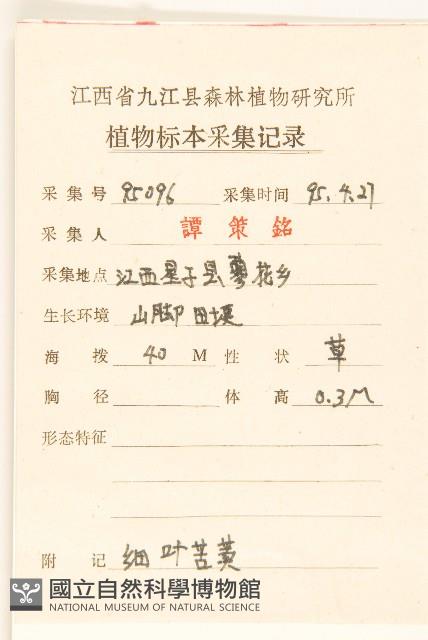 江西省九江县森林植物研究所
植物标本采集记录
采集号 95096 采集时间 95.4.27
采集人 譚策銘
采集地点 江西星子县蓼花乡
生长环境 山脚田埂
海拨 40 M 性状 草
胸径 体高 0.3M
形态特征
附记 细叶苦荬
國立自然科學博物館
NATIONAL MUSEUM OF NATURAL SCIENCE